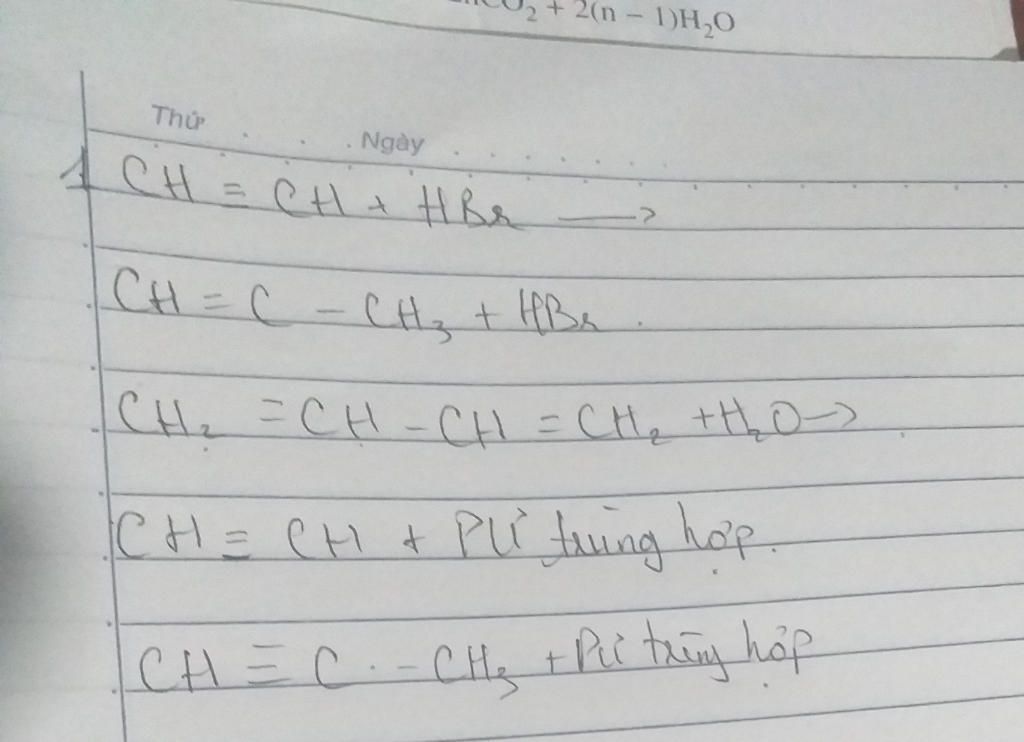 CO₂ + 2(n − 1)H₂O
Thứ . . . . Ngày . . . . . . . .
1 CH = CH + HBr →
CH = C − CH₃ + HBr .
CH₂ = CH − CH = CH₂ + H₂O →
CH ≡ CH + PƯ trùng hợp.
CH ≡ C − CH₃ + PƯ trùng hợp